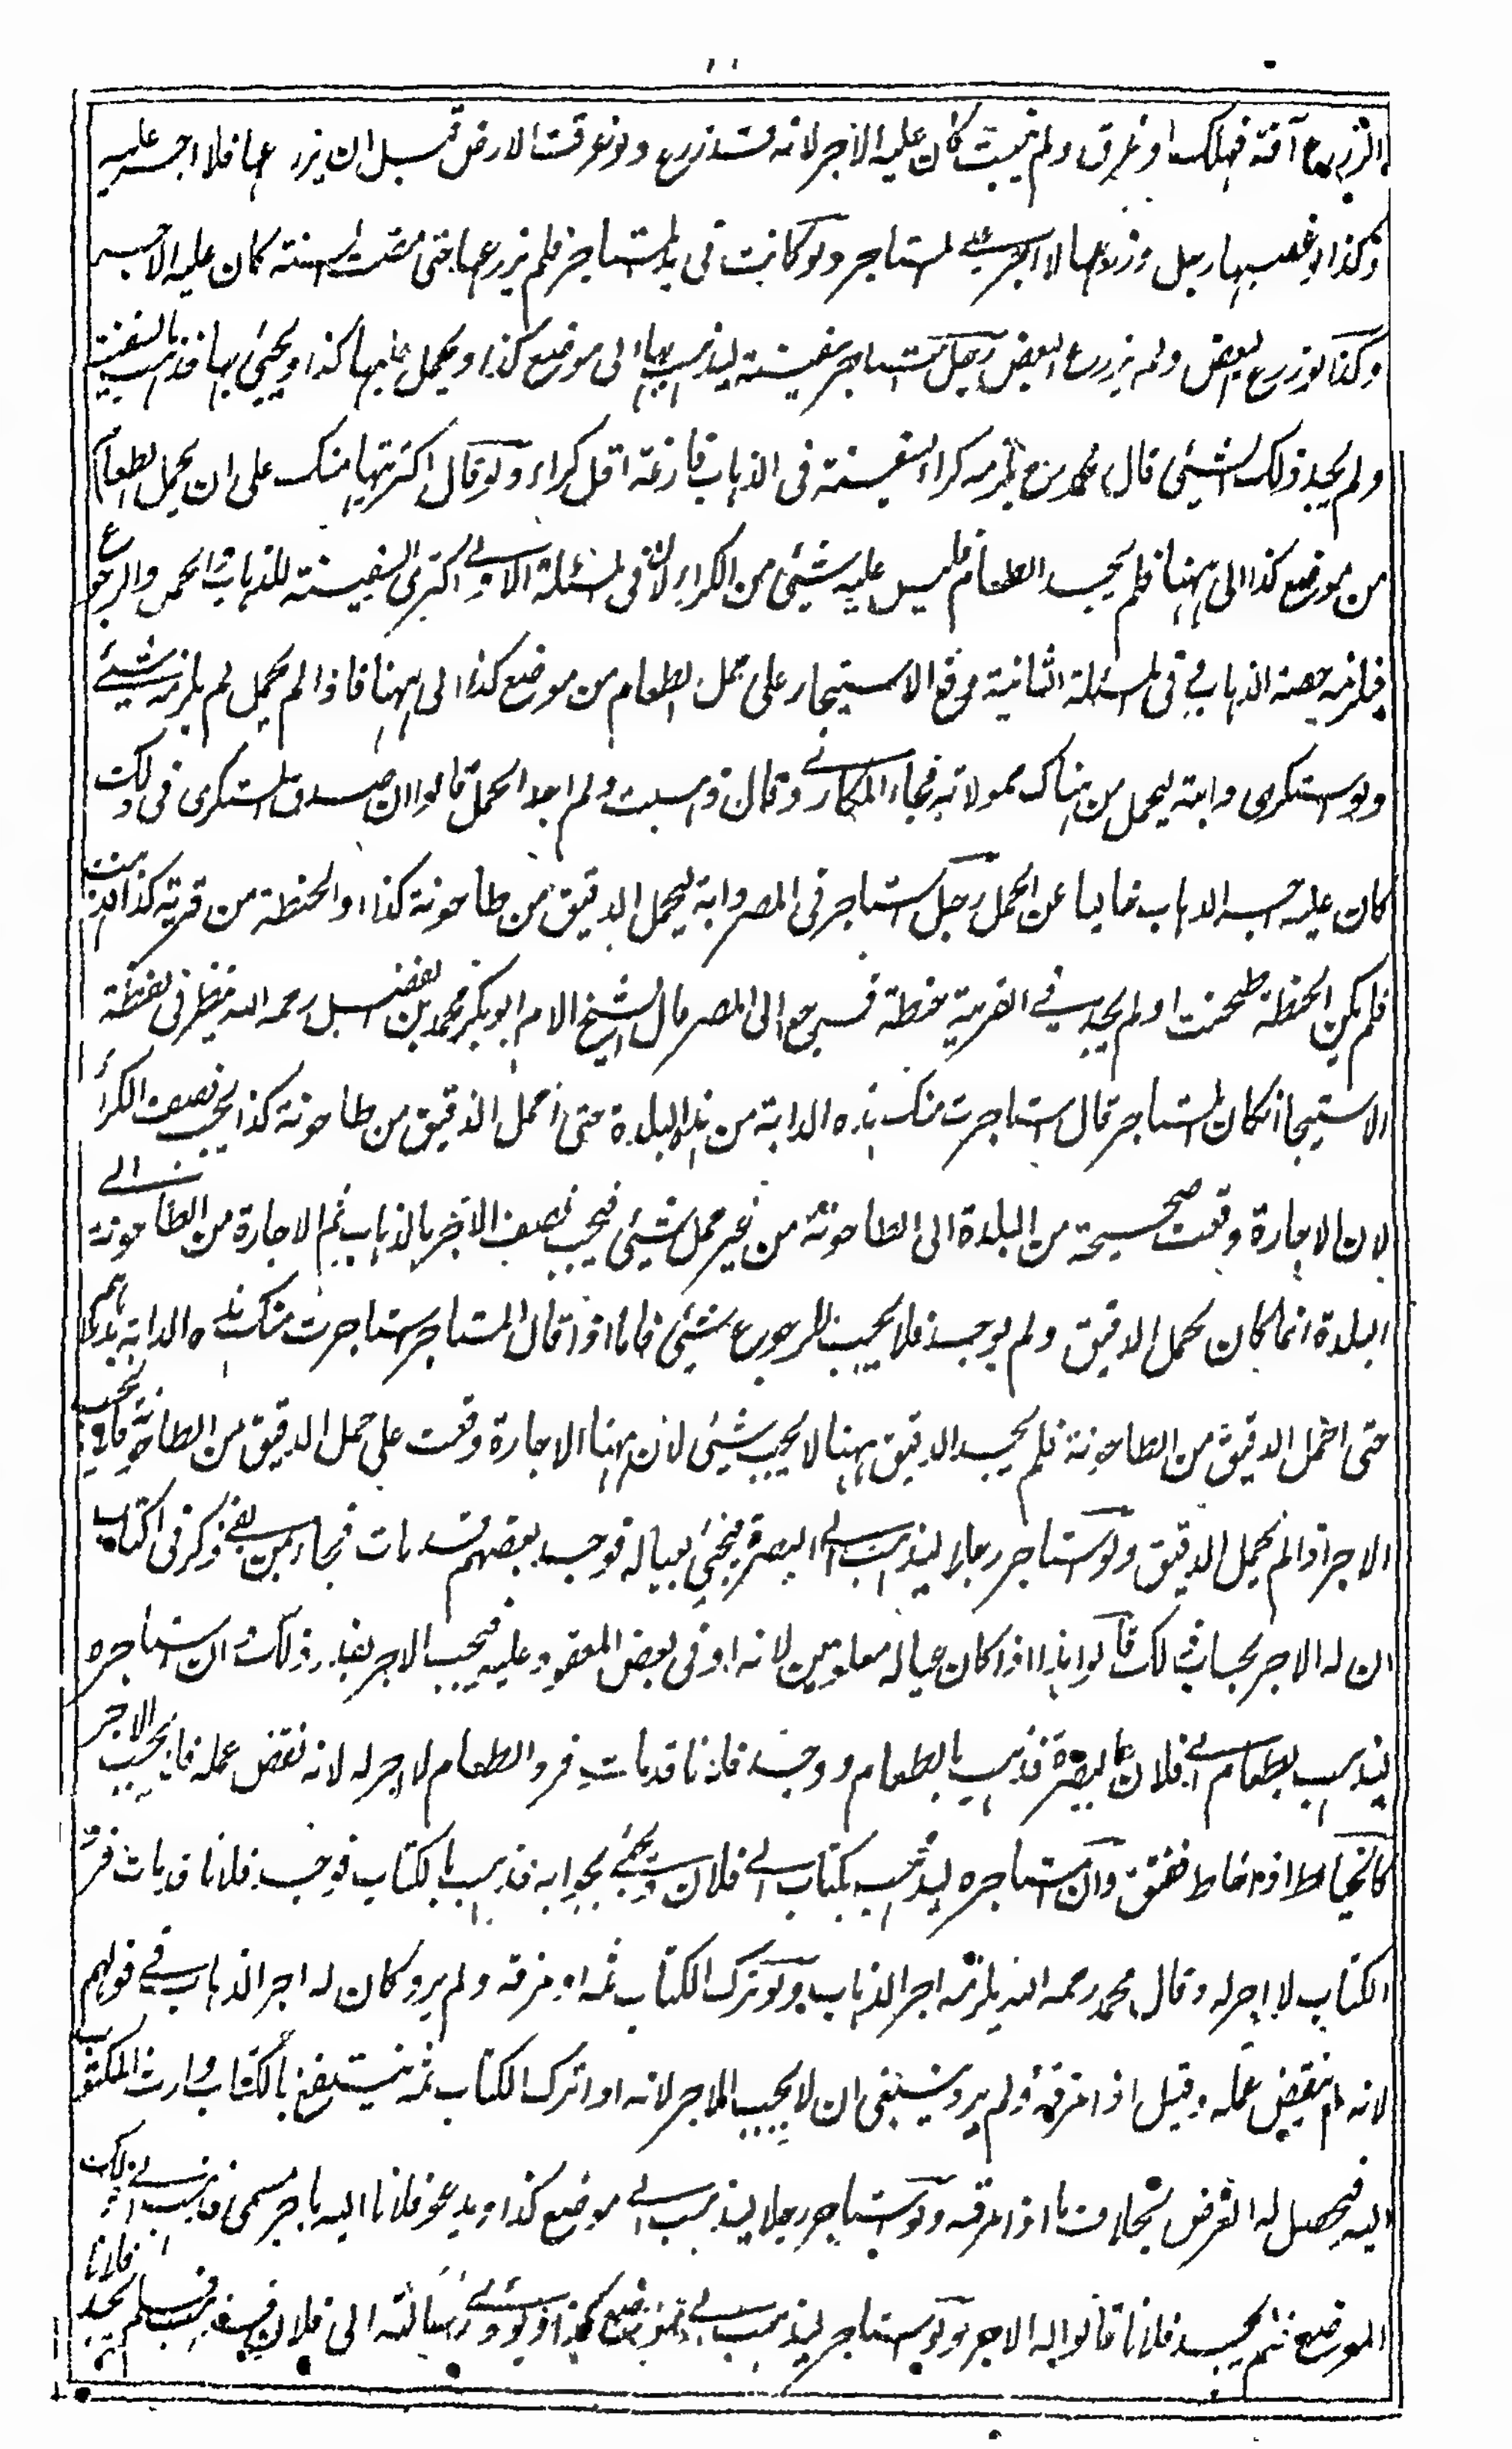 الزرع آفة فهلك او غرق ولم ينبت كان عليه الاجر لانه قد زرع ولو غرقت الارض قبل ان يزرعها فلا اجر عليه
وكذا لو غصبها رجل وزرعها لا اجر على المستاجر ولو كانت فى يد المستاجر فلم يزرعها حتى مضت السنة كان عليه الاجر
وكذا لو زرع البعض ولم يزرع البعض رجل استاجر سفينة ليذهب بها الى موضع كذا ويحمل عليها كذا ويجئ بها فذهب بالسفينة
ولم يجد ذلك الشيئ قال محمد رح يلزمه كراء السفينة فى الذهاب فارغة اقل كراء ولو قال اكتريتها منك على ان يحمل الطعام
من موضع كذا الى ههنا فلم يجد الطعام فليس عليه شيئ من الكراء لان فى المسئلة الاولى اكترى السفينة للذهاب والحمل والرجوع
فيلزمه حصة الذهاب وفى المسئلة الثانية وقع الاستيجار على حمل الطعام من موضع كذا الى ههنا فاذا لم يحمل لم يلزمه شيئ
ولو استكرى دابة ليحمل من هناك حمولاته فجاء المكارى وقال ذهبت ولم اجد الحمل قالوا ان صدق المستكرى فى ذلك
كان عليه اجر الذهاب خاليا عن الحمل رجل استاجر فى المصر دابة ليحمل الدقيق من طاحونة كذا والحنطة من قرية كذا فذهب
فلم يكن الحنطة طحنت او لم يجد فى القرية حنطة فرجع الى المصر قال الشيخ الامام ابو بكر محمد بن الفضل رحمه الله ينظر فى لفظة
الاستيجار ان كان المستاجر قال استاجرت منك هذه الدابة من هذه البلدة حتى احمل الدقيق من طاحونة كذا يجب نصف الكراء
لان الاجارة وقعت صحيحة من البلدة الى الطاحونة من غير حمل شيئ فيجب نصف الاجر بالذهاب ثم الاجارة من الطاحونة الى
البلدة انما كان لحمل الدقيق ولم يوجد فلا يجب للرجوع شيئ فاما اذا قال المستاجر استاجرت منك هذه الدابة بدرهم
حتى احمل الدقيق من الطاحونة فلم يجد الدقيق ههنا لا يجب شيئ لان ههنا الاجارة وقعت على حمل الدقيق من الطاحونة فلا يجب
الاجر اذا لم يحمل الدقيق ولو استاجر رجلا ليذهب الى البصرة فيجئ بعياله فوجد بعضهم قد مات فجاء بمن بقى ذكر فى الكتاب
ان له الاجر بحساب ذلك قالوا هذا اذا كان عياله معلومين لانه اوفى بعض المعقود عليه فيجب الاجر بقدر ذلك وان استاجره
ليذهب بطعام الى فلان بالبصرة فذهب بالطعام ووجد فلانا قد مات فرد الطعام لا اجر له لانه نقض عمله فلا يجب الاجر
كالخياط اذا خاط ففتق وان استاجره ليذهب بكتاب الى فلان ويجئ بجوابه فذهب بالكتاب فوجد فلانا قد مات فرد
الكتاب لا اجر له وقال محمد رحمه الله يلزمه اجر الذهاب ولو ترك الكتاب ثمه او مزقه ولم يرد كان له اجر الذهاب فى قولهم
لانه لم ينقض عمله وقيل اذا مزقه ولم يرد ينبغى ان لا يجب الاجر لانه اذا ترك الكتاب ثمه ينتفع بالكتاب وارث المكتوب
اليه فيحصل له الغرض بخلاف ما اذا مزقه ولو استاجر رجلا ليذهب الى موضع كذا ويدعو فلانا اليه باجر مسمى فذهب الى ذلك
الموضع فلم يجد فلانا قالوا له الاجر ولو استاجر ليذهب الى موضع كذا ويؤدى رسالته الى فلان فذهب فلم يجد فلانا